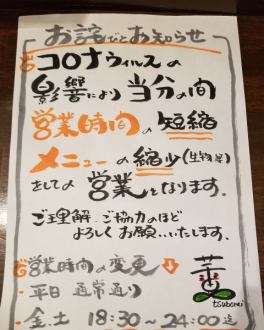 お詫びとお知らせ
コロナウィルスの
影響により当分の間
営業時間の短縮
メニューの縮少(生物等)
をしての営業となります。
ご理解、ご協力のほど
よろしくお願いいたします。
営業時間の変更
・平日 通常通り
・金.土 18:30〜24:00迄
蕾
tsubomi